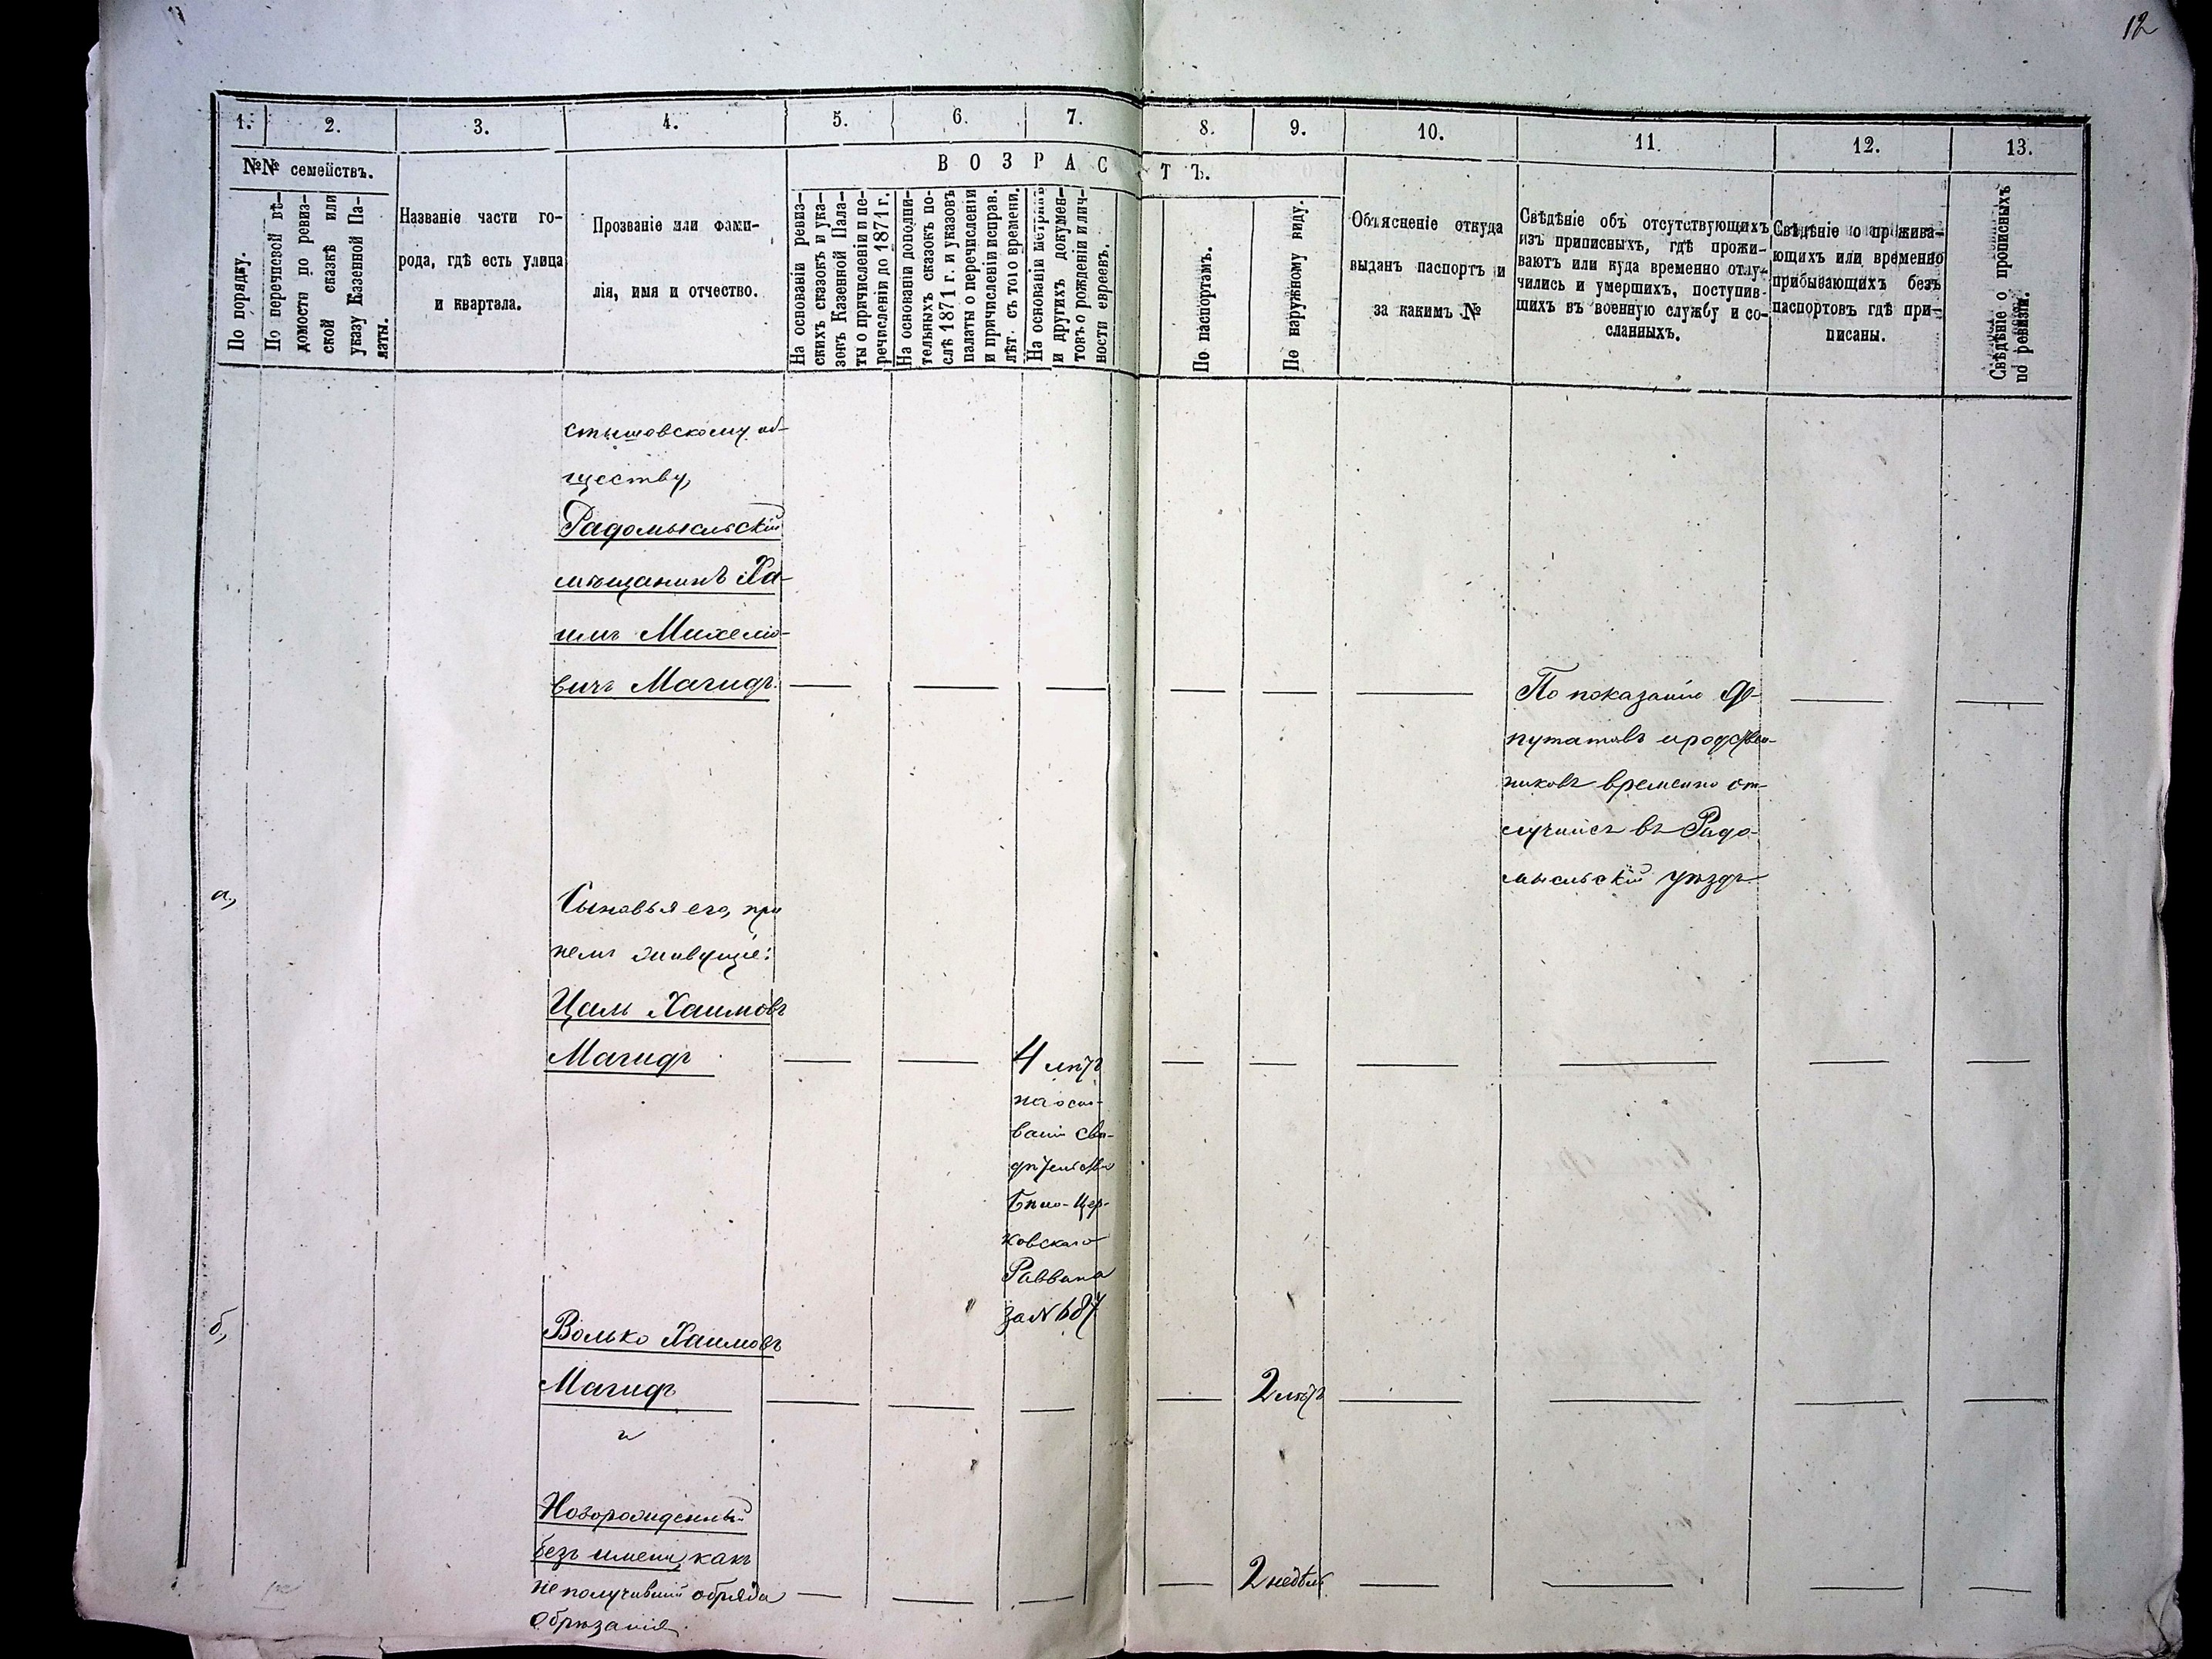 12
1. 2. 3. 4. 5. 6. 7. 8. 9. 10. 11. 12. 13.
№№ семействъ.
По порядку.
По перечневой вѣ-
домости по ревиз-
ской сказкѣ или
указу Казенной Па-
латы.
Названіе части го-
рода, гдѣ есть улица
и квартала.
Прозваніе или фами-
лія, имя и отчество.
ВОЗРАСТЪ.
На основаніи ревиз-
скихъ сказокъ и ука-
зовъ Казенной Пала-
ты о причисленіи и пе-
речисленіи до 1871 г.
На основаніи дополни-
тельныхъ сказокъ по-
слѣ 1871 г. и указовъ
палаты о перечисленіи
и причисленіи исправ.
лѣт. съ того времени.
На основаніи метрикъ
и другихъ докумен-
товъ о рожденіи и лич-
ности евреевъ.
По паспортамъ.
По наружному виду.
Объясненіе откуда
выданъ паспортъ и
за какимъ №
Свѣдѣніе объ отсутствующихъ
изъ приписныхъ, гдѣ прожи-
ваютъ или куда временно отлу-
чились и умершихъ, поступив-
шихъ въ военную службу и со-
сланныхъ.
Свѣдѣніе о прожива-
ющихъ или временно
прибывающихъ безъ
паспортовъ гдѣ при-
писаны.
Свѣдѣніе о прописныхъ
по ревизіи.
стышовскому об-
ществу,
Радомысльскій
мѣщанинъ Ха-
имъ Михеліо-
вичъ Магидъ.
По показанію де-
путатовъ и родствен-
никовъ временно от-
лучился въ Радо-
мысльскій уѣздъ.
а,
Сыновья его, при
немъ живущіе:
Цаль Хаимовъ
Магидъ
4 лѣтъ
на осно-
ваніи сви-
дѣтельства
Бѣло-Цер-
ковскаго
Раввина
за №687
б,
Волько Хаимовъ
Магидъ
2 лѣтъ
и
Новорожденный
безъ имени, какъ
неполучившій обряда
обрѣзанія.
2 недѣль